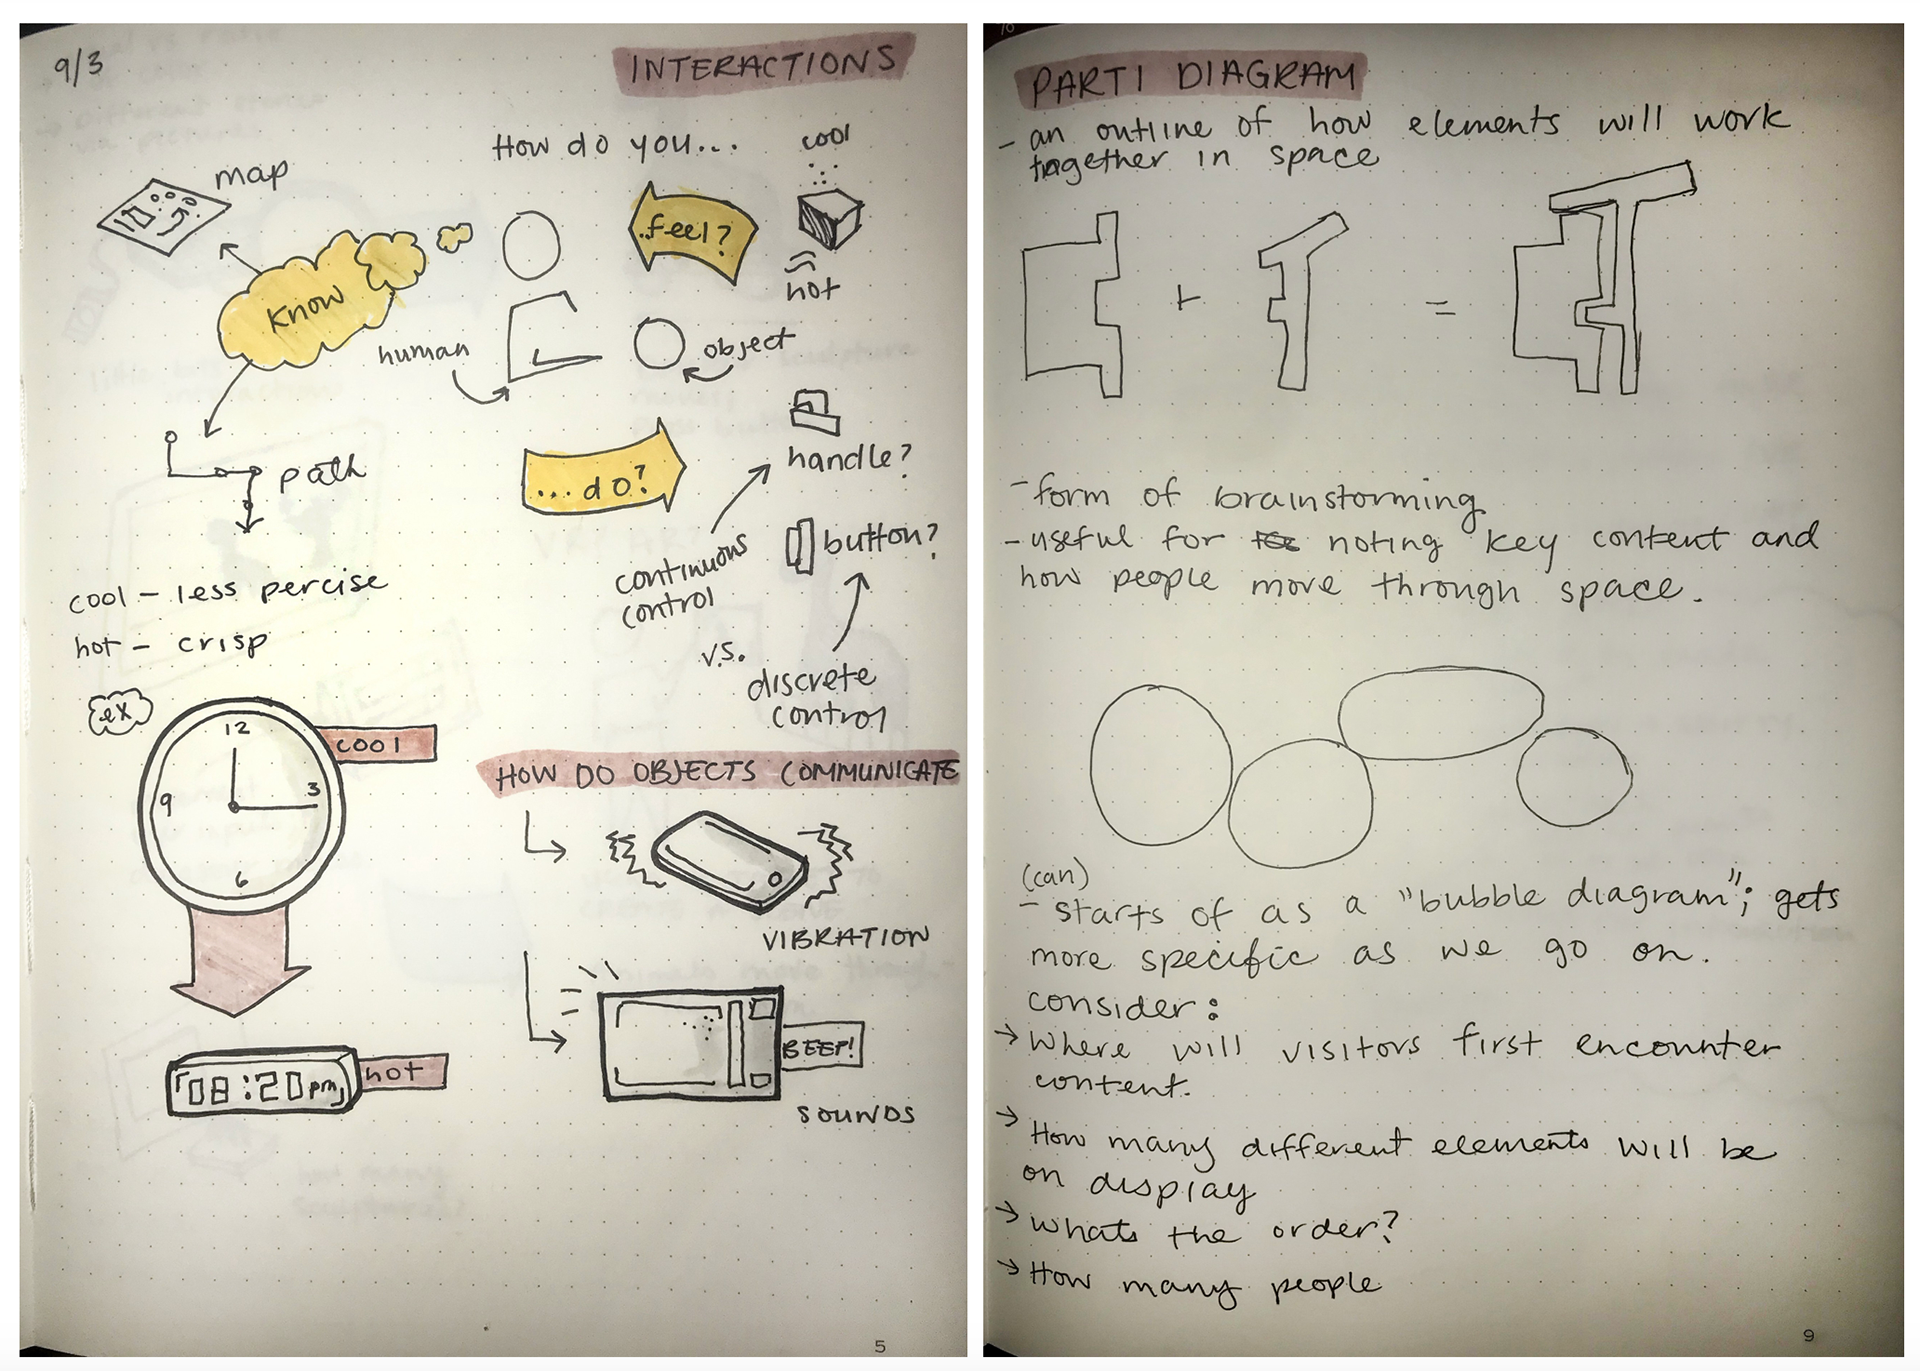 9/3
INTERACTIONS
How do you...
cool
map
..feel?
Know
hot
human
object
handle?
path
...do?
button?
continuous
control
cool - less percise
hot - crisp
v.s.
discrete
control
ex
12
cool
3
9
6
HOW DO OBJECTS COMMUNICATE
VIBRATION
BEEP!
08:20pm
hot
SOUNDS
5
PARTI DIAGRAM
- an outline of how elements will work
together in space
+
=
- form of brainstorming
- useful for noting key content and
how people move through space.
(can)
- starts of as a "bubble diagram"; gets
more specific as we go on.
consider:
→ Where will visitors first encounter
content.
→ How many different elements will be
on display
→ Whats the order?
→ How many people
9